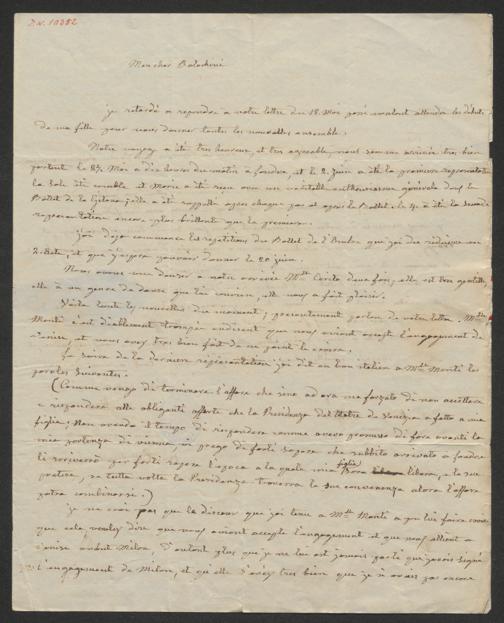 D.N. 10352
Mon cher Balochini
j'ai retardé a repondre a votre lettre du 18. Mai voulant attendre les débuts
de ma fille pour vous donner toutes les nouvelles ensemble.
Notre voyage a été tres heureux et tres agreable, nous somme arrivée tres bien
portant le 27. Mai a dix heures du matin a Londre, et le 2. Juin a été la premiere representation
la Sale été comble et Marie a été reçu avec un veritable enthousiasme générale dans le
Ballet de la Gitana, elle a été rappellé apres chaque pas et apres le Ballet. le 4. a été la seconde
représentation encore plus brillente que la premiere.
j'ai deja commencé les repetitions du Ballet de l'Ombre que j'ai du réduire en
2. Acte, et que j'espere pouvoir donner le 20 juin.
Nous avons vue danser a notre arrivée Mlle Cerito deux fois, elle est bien
elle a un genre de danse que lui convien, elle nous a fait plaisir.
Voila toute les nouvelles du moment, presentement parlon de votre lettre. Mme
Monti s'est diablement trompée en disent que nous avions accepté l'engagement de
Venise, et vous avez tres bien fait de ne point le croire.
Le soire de la derniere représentation j'ai dit en bon italien a Mme Monti les
paroles suivantes.
(Comme vengo di terminare l'affare che sine ad ora mi a forzato di non accettare
e rispondere alle obliganti offerte che la Presidenza del teatro de Venezia a fatto a mia
figlia: Non avendo il tempo di rispondere comme avevo promesso di fare avanti la
mia partenza di vienna, vi prego di farli sapere che subbito arrivato a Londre
li scriverò per farli sapere l'epoca a la quale mia figlia sara libera, e le sue
pretese, se tutta volta la Presidenza troverra la sue convenienza alora l'affare
potra combinarsi.)
je ne croi pas que le discour que j'ai tenu a Mme Monti a pu lui faire croire
que cela voulez dire que nous avions accepté l'engagement et que nous allions a
Venise avant Milan. D'autant plus que je ne lui est jamais parlé que j'avais signé
l'engagement de Milan, et qu'elle savez tres bien que je n'avais pas encore